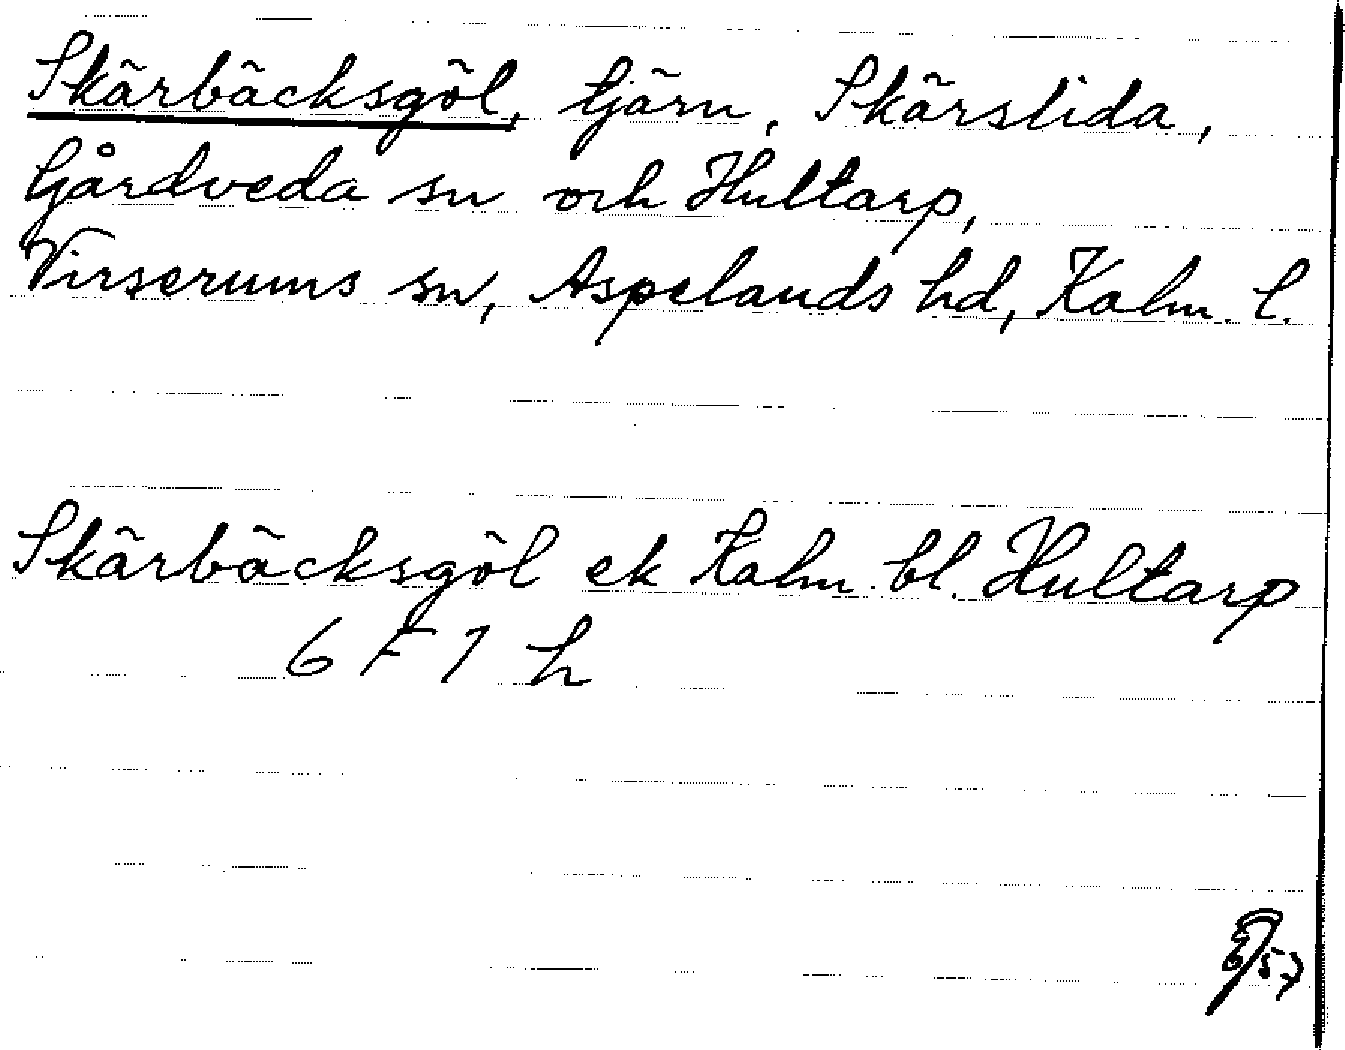 Skärbäcksgöl, tjärn, Skärslida,
Gårdveda sn och Hultarp,
Virserums sn, Aspelands hd, Kalm. l.
Skärbäcksgöl ek Kalm. bl. Hultarp
6 F 7 h